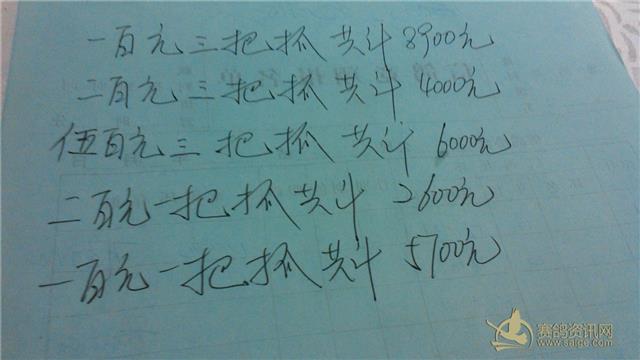 一百元三把抓共计8900元
二百元三把抓共计4000元
伍百元三把抓共计6000元
二百元一把抓共计2600元
一百元一把抓共计5700元
赛鸽资讯网
www.saige.com